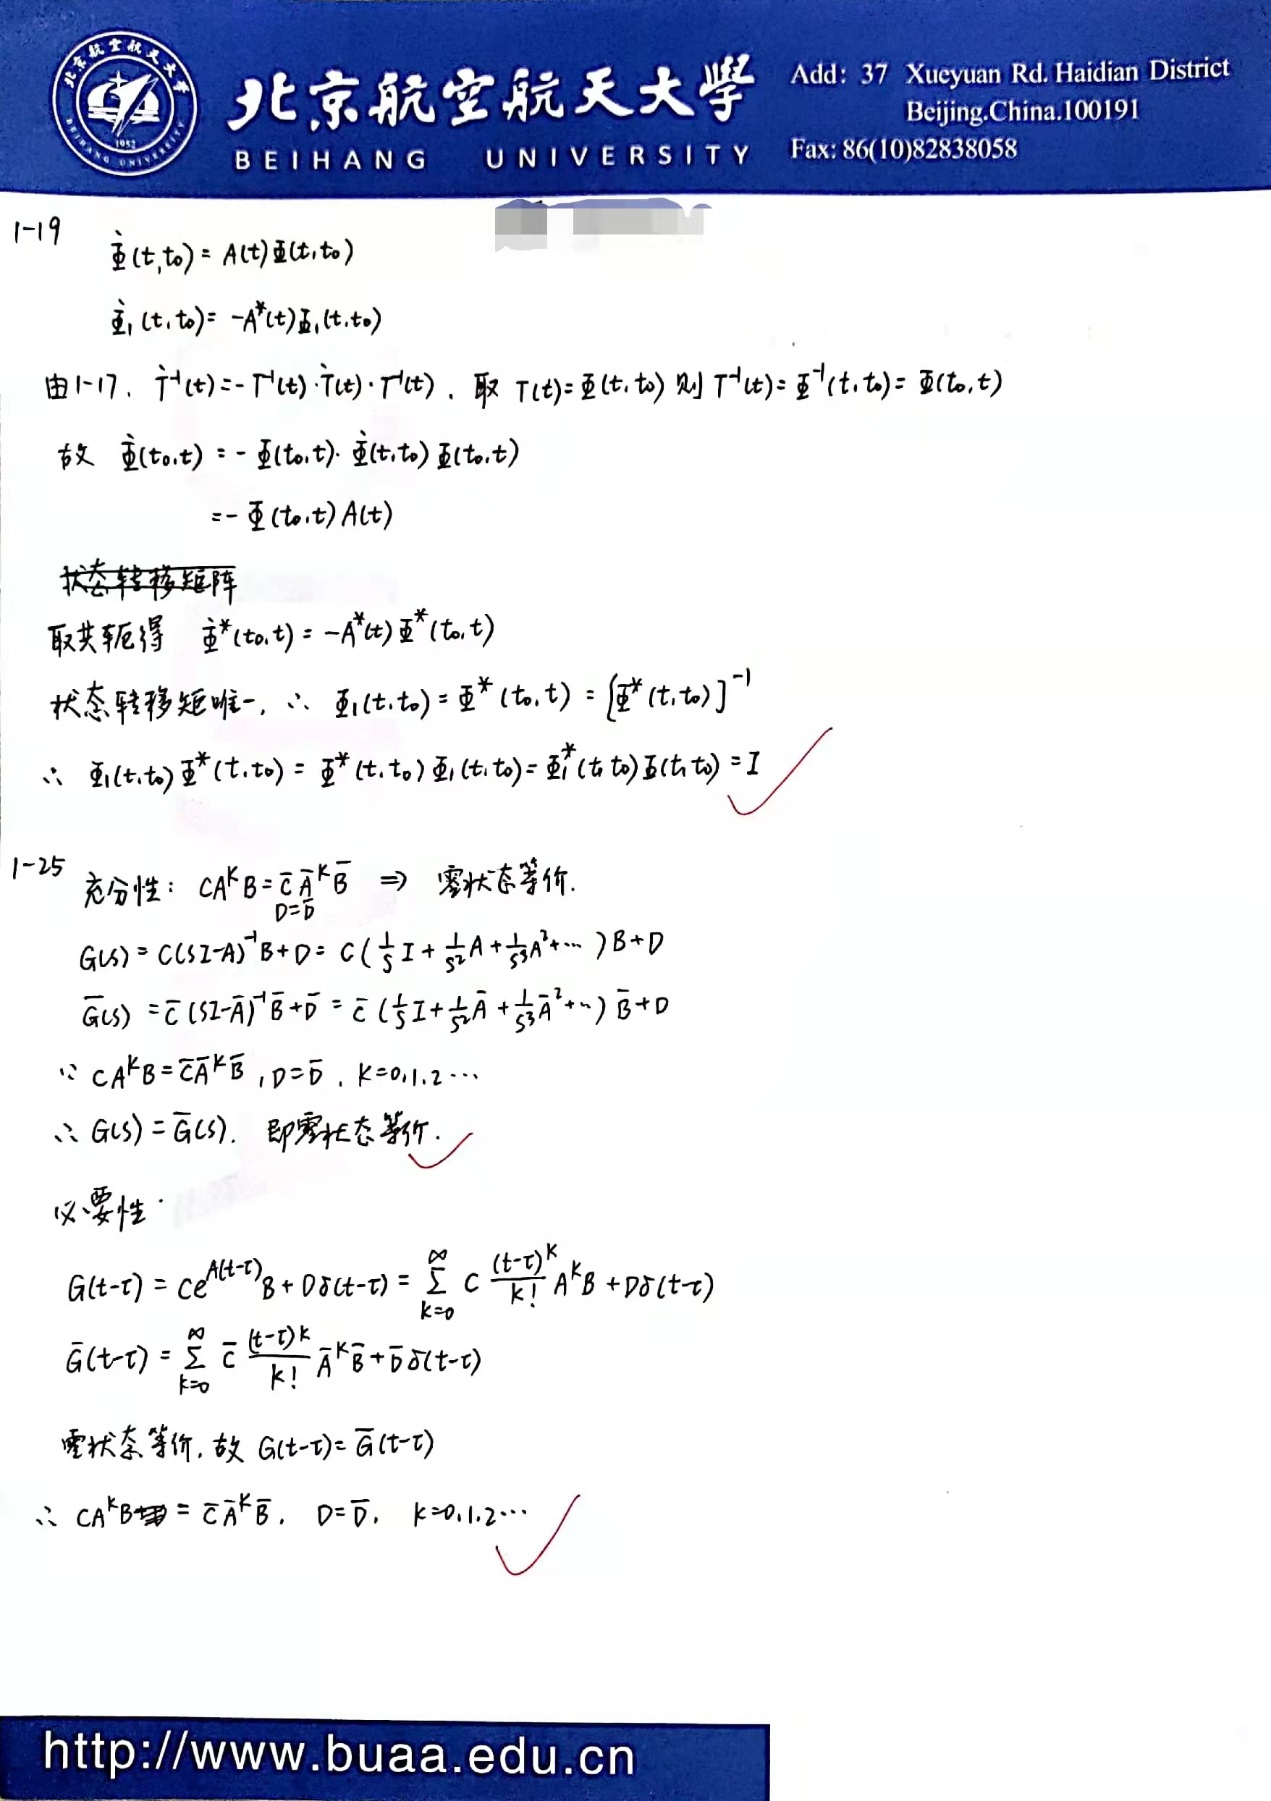 北京航空航天大學
BEIHANG UNIVERSITY
Add: 37 Xueyuan Rd. Haidian District
Beijing.China.100191
Fax: 86(10)82838058
北京航空航天大学
BEIHANG UNIVERSITY
1952
1-19
Φ̇(t,t₀) = A(t)Φ(t,t₀)
Φ̇₁(t,t₀) = -A*(t)Φ₁(t,t₀)
由1-17, Ṫ⁻¹(t) = -T⁻¹(t)·Ṫ(t)·T⁻¹(t), 取 T(t)=Φ(t,t₀) 则 T⁻¹(t)=Φ⁻¹(t,t₀)=Φ(t₀,t)
故 Φ̇(t₀,t) = -Φ(t₀,t)·Φ̇(t,t₀)Φ(t₀,t)
= -Φ(t₀,t)A(t)
状态转移矩阵
取共轭得 Φ̇*(t₀,t) = -A*(t)Φ*(t₀,t)
状态转移矩唯一, ∴ Φ₁(t,t₀) = Φ*(t₀,t) = [Φ*(t,t₀)]⁻¹
∴ Φ₁(t,t₀)Φ*(t,t₀) = Φ*(t,t₀)Φ₁(t,t₀) = Φ₁*(t,t₀)Φ(t,t₀) = I
1-25
充分性: CAᴷB = C̄ĀᴷB̄ ⇒ 零状态等价.
D=D̄
G(s) = C(SI-A)⁻¹B+D = C(1/S I + 1/S² A + 1/S³ A² + ⋯)B+D
Ḡ(s) = C̄(SI-Ā)⁻¹B̄+D̄ = C̄(1/S I + 1/S² Ā + 1/S³ Ā² + ⋯)B̄+D
∵ CAᴷB = C̄ĀᴷB̄, D=D̄, K=0,1,2⋯
∴ G(s) = Ḡ(s). 即零状态等价.
必要性·
G(t-τ) = Ce^{A(t-τ)}B + Dδ(t-τ) = Σ_{k=0}^{∞} C (t-τ)ᴷ/k! AᴷB + Dδ(t-τ)
Ḡ(t-τ) = Σ_{k=0}^{∞} C̄ (t-τ)ᴷ/k! ĀᴷB̄ + D̄δ(t-τ)
零状态等价, 故 G(t-τ) = Ḡ(t-τ)
∴ CAᴷB = C̄ĀᴷB̄, D=D̄, K=0,1,2⋯
http://www.buaa.edu.cn